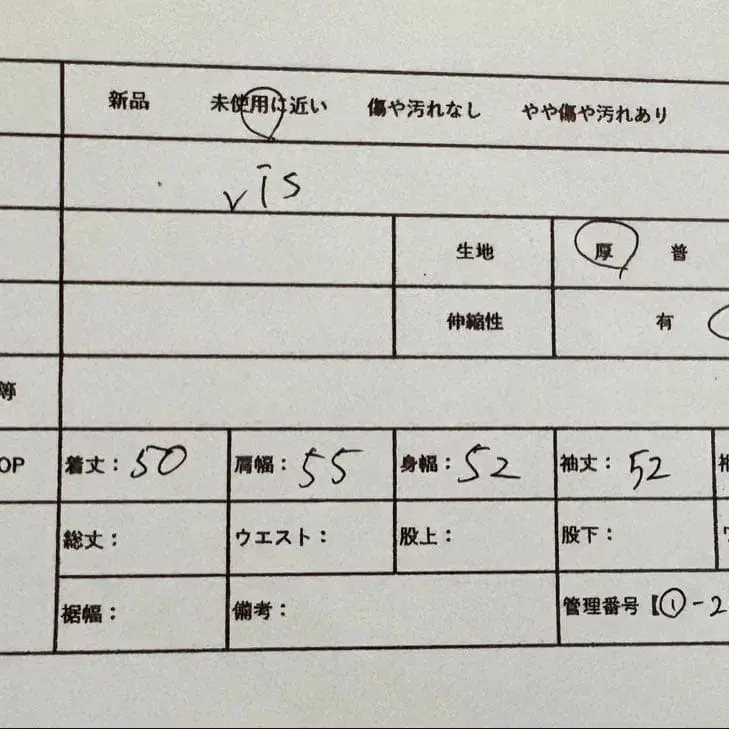 新品 未使用に近い 傷や汚れなし やや傷や汚れあり
vis
生地 厚 普
伸縮性 有
等
OP 着丈：50 肩幅：55 身幅：52 袖丈：52
総丈： ウエスト： 股上： 股下：
裾幅： 備考： 管理番号【①-2